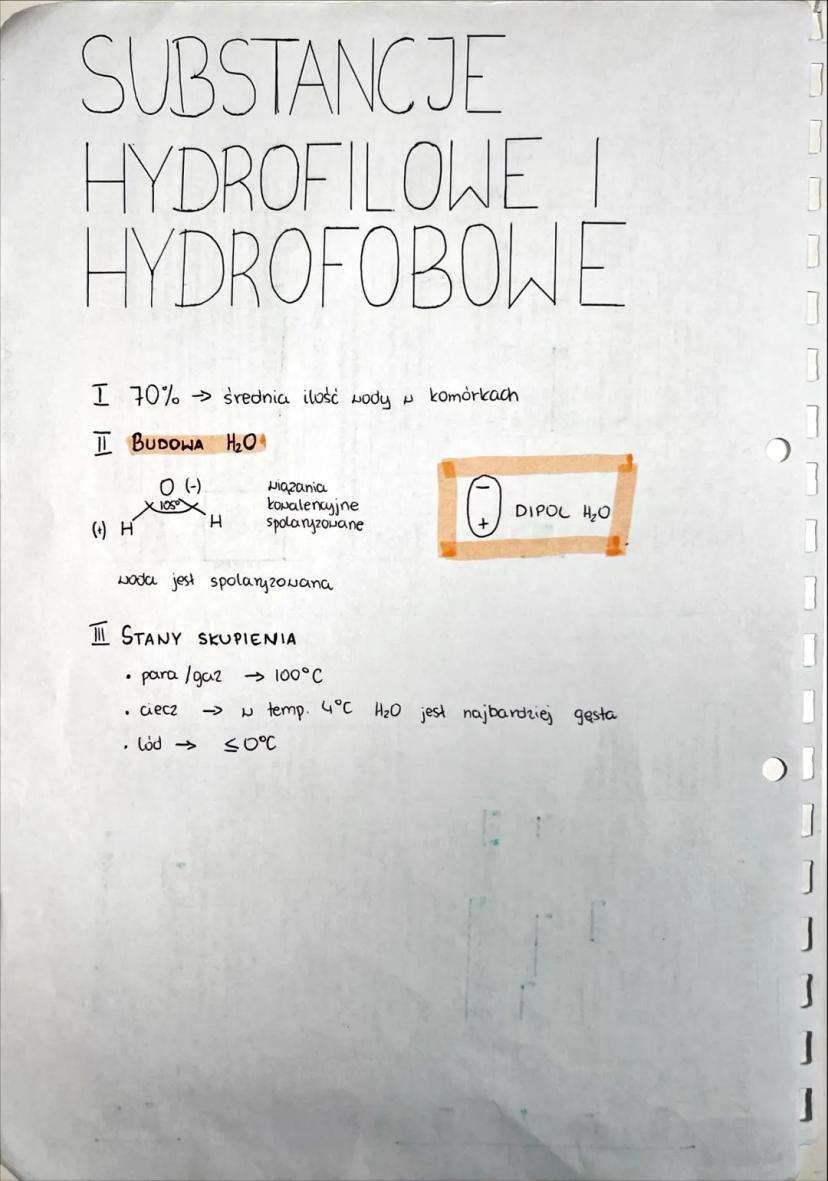 SUBSTANCJE
HYDROFILOWE I
HYDROFOBOWE
I 70% → średnia ilość wody w komórkach
II BUDOWA H₂O
O (-)
105°
(+) H H
wiązania
kowalencyjne
spolaryzowane
−
+
DIPOL H₂O
woda jest spolaryzowana
III STANY SKUPIENIA
• para /gaz → 100°C
• ciecz → w temp. 4°C H₂O jest najbardziej gęsta
• lód → ≤ 0°C